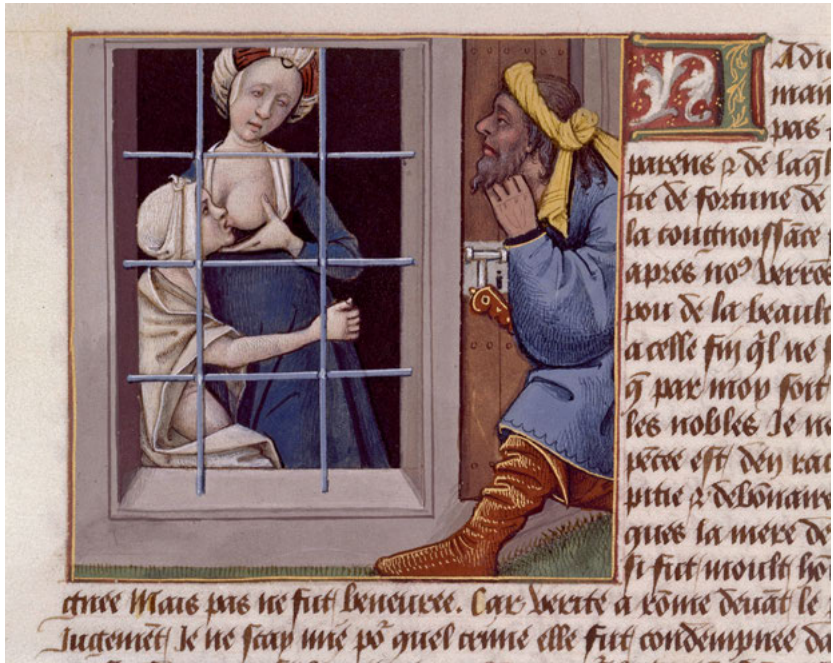 A dit
man
pas
parens ⁊ de laq̃l
tie de fortune de
la congnoissãce
apres noꝰ verrõ
pou de la beault
a celle fin q̃l ne
q̃ par moy soit
les nobles Je ne
pẽcee est / den rac
pitie ⁊ debõnaire
ques la mere de
si fut moult hõ
gnee Mais pas ne fut beneuree. Car verite a rõme deuãt le
Jugemẽt / Je ne scay mie põ quel crime elle fut condempnee da